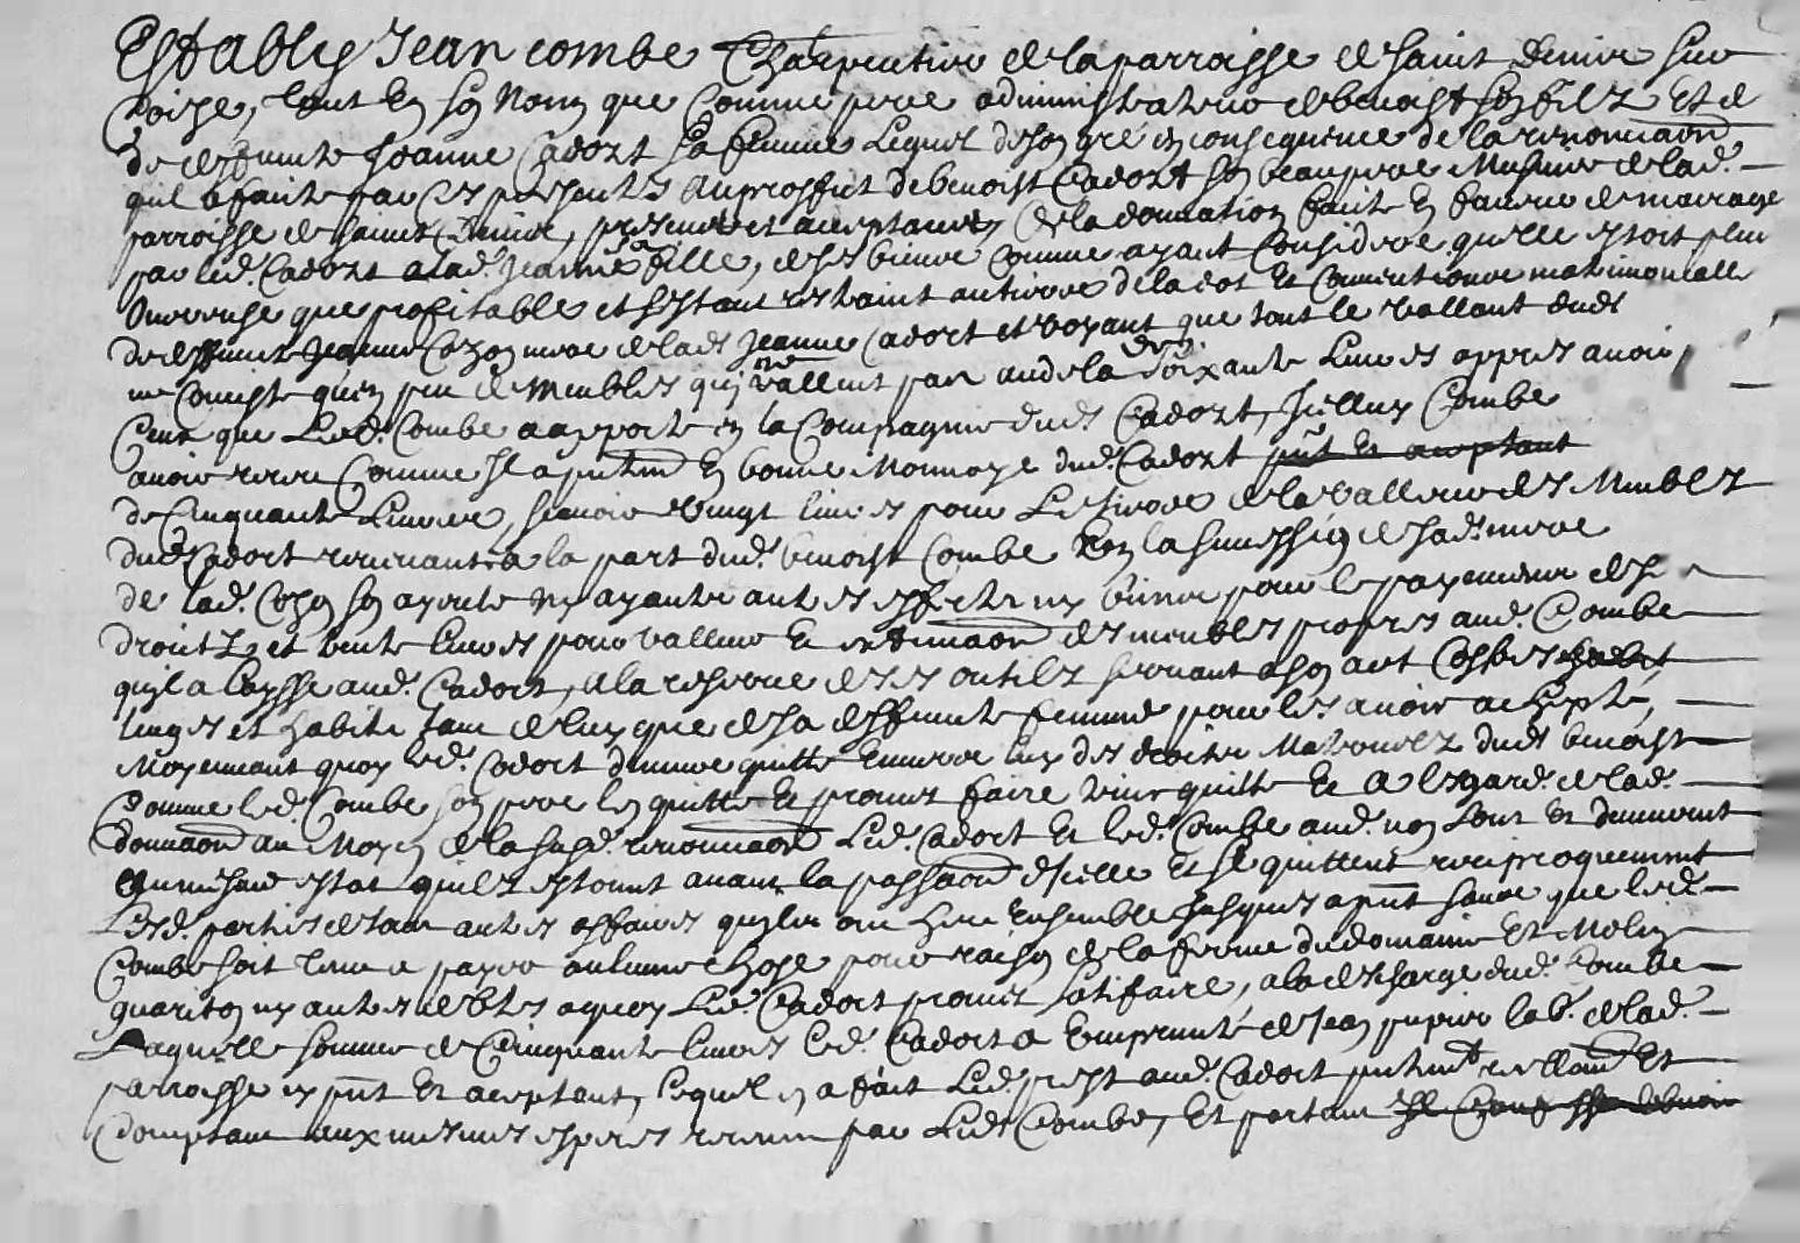 Establys Jean combe Charpentier de la parroisse de saint Denive sur
Coise, tant En son Nom que Comme pere administrateur de benoist son filz Et de
de deffuncte Jeanne Cadozt sa femme Lequel de son gré en consequence de la renonciaon
quil a faicte par Ces presentes Au proffict de benoist Cadozt son beaupere Musnier de lad.
parroisse de saint Denive, present et acceptant, de la donnation faicte En faveur de mariage
par led. Cadozt a lad. Jeanne sa fille, de ses biens Comme ayant Consideré quelle estoit plus
Onereuse que profitable et sestant restraint au tiers de la dot Et Conventions matrimonialle
de deffuncte Jeanne Cozon mere de lad. Jeanne Cadozt et voyant que tout le vallant dud.
ne Consiste quen peu de Meubles qui ne vallent pas au dela de soixante Livres appres avoir
que Led. Combe a apporté en la Compagnie dud. Cadozt, Icelluy Combe
avoir receu Comme Il a pntemt En bonne Monnoye dud. Cadozt pnt Et acceptant
de Cinquante Livres, scavoir vingt livres pour Le tiers de la valleur des Meubles
dud. Cadozt revenant a la part dud. benoist Combe En la succession de sad. mere
de lad. Cozon son ayeule Ny ayant autres effects ny biens pour le payement de ses
droitz, et trente livres pour valleur Et estimaon des meubles propres aud. Combe
quil a laysse aud. Cadozt, A la reserve de ses outilz servant a son art
linges et habits tant de luy que de sa deffuncte femme pour les avoir achepté,
Moyennant quoy led. Cadozt demeure quitte Envers luy des droits Maternelz dud. benoist
Comme led. Combe son pere len quitte Et promet faire tenir quitte Et A lesgard de lad.
donnaon au Moyen de la susd. renonciaon Led. Cadozt Et led. Combe aud. nom sont Et demeurent
En mesme estat quilz estoient avant la passaon dicelle Et se quittent reciproquement
Lesd. parties de tous autres affaires quilz ont heu Ensemble Jusques a pnt sans que led.
Combe soit tenu a payer aulcune chose pour raison de la ferme du domaine Et Molin
ny autres debtes a quoy Led. Cadozt promet satisfaire, a la descharge dud. Combe
Laquelle somme de Cinquante livres led. Cadozt a Emprunté de Jean pupier lab. de lad.
parroisse cy pnt Et acceptant, Lequel en a fait Led. prest aud. Cadozt pntemt reellemt Et
Comptant aux mesmes especes receues par Led. Combe, Et partant